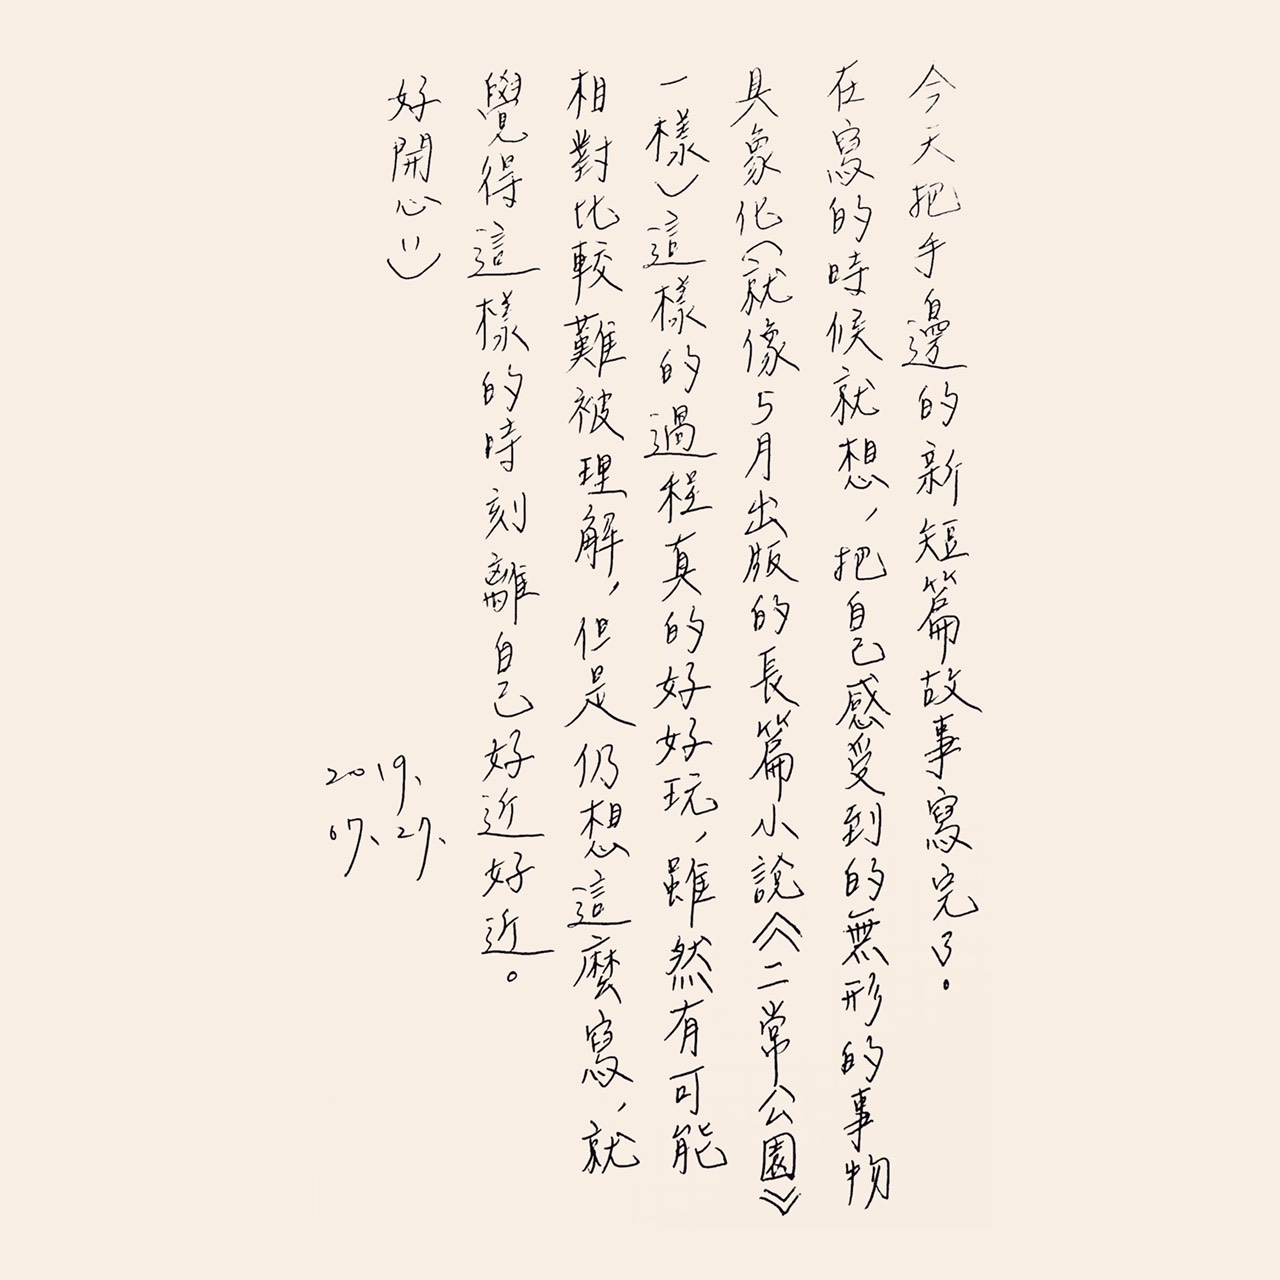 今天把手邊的新短篇故事寫完了。
在寫的時候就想，把自己感受到的無形的事物
具象化（就像5月出版的長篇小說《二常公園》
一樣）這樣的過程真的好好玩，雖然有可能
相對比較難被理解，但是仍想這麼寫，就
覺得這樣的時刻離自己好近好近。
好開心:)
2019.
07.27.